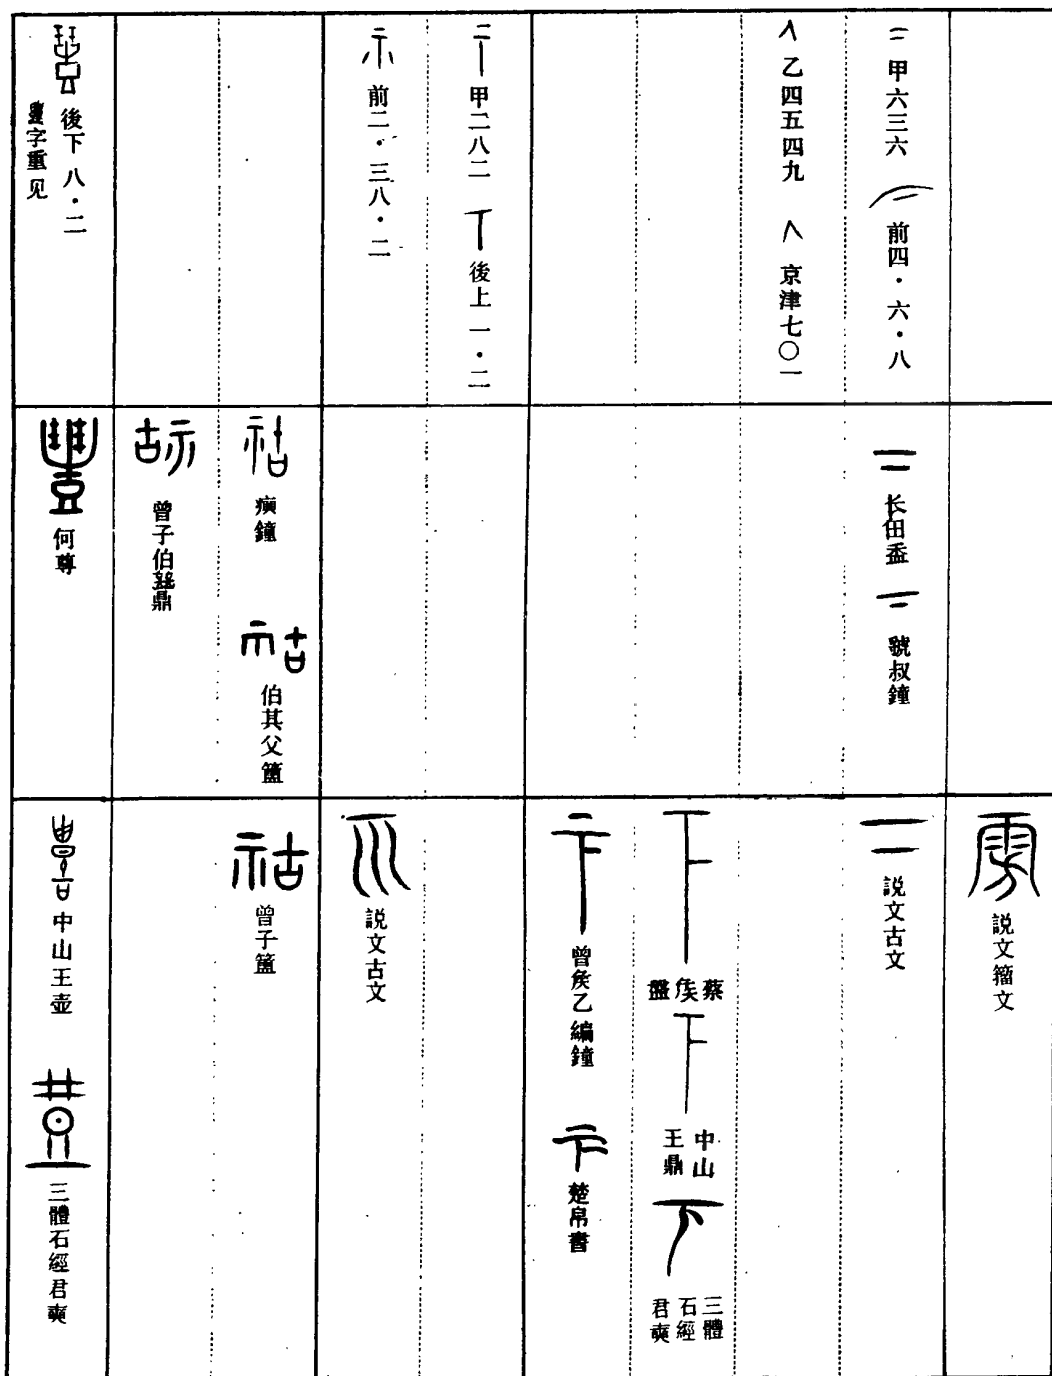 甲六三六 前四·六·八
乙四五四九 京津七〇一
甲二八二 後上一·二
前二·三八·二
後下八·二
豊字重见
长甶盉 虢叔鐘
鐘 伯其父簠
曾子伯鼎
何尊
説文籀文
説文古文
蔡侯盤
中山王鼎
三體石經君奭
曾侯乙編鐘 楚帛書
説文古文
曾子簠
中山王壺 三體石經君奭